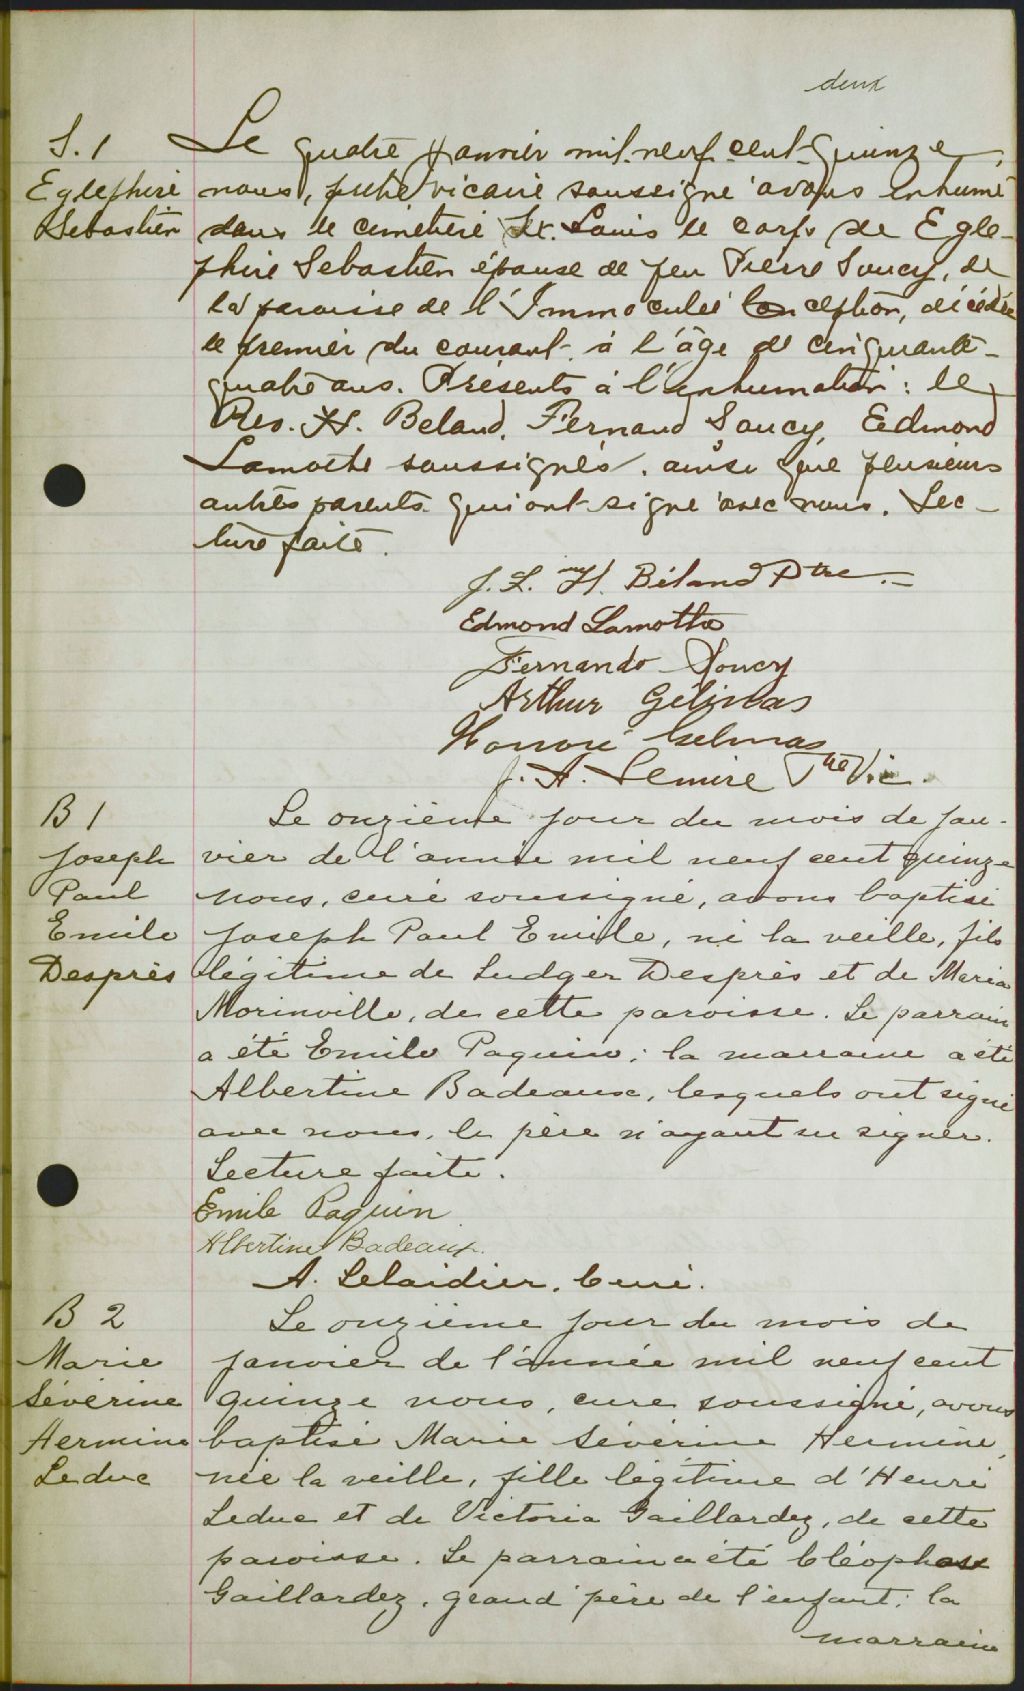 deux
S. 1
Eglephire
Sebastien
Le quatre Janvier mil-neuf-cent-quinze,
nous, prêtre vicaire sousseigné avons inhumé
dans le cimetière St. Louis le corps de Egle-
phire Sebastien épouse de feu Pierre Soucy, de
la paroisse de l'Immaculée Conception, décédée
le premier du courant à l'âge de cinquante-
quatre ans. Présents à l'inhumation : le
Rev. H. Beland, Fernand Soucy, Edmond
Lamothe soussignés, ainsi que plusieurs
autres parents qui ont signé avec nous. Lec-
ture faite.
J. L. H. Béland Ptre.
Edmond Lamothe
Fernando Soucy
Arthur Gélinas
Honoré Gelinas
J. A. Lemire Ptre Vic.
B 1
Joseph
Paul
Emile
Desprès
Le onzième jour du mois de jan-
vier de l'année mil neuf cent quinze
nous, curé soussigné, avons baptisé
Joseph Paul Emile, né la veille, fils
légitime de Ludger Desprès et de Maria
Morinville, de cette paroisse. Le parrain
a été Emile Paquin ; la marraine a été
Albertine Badeaux, lesquels ont signé
avec nous, le père n'ayant su signer.
Lecture faite.
Emile Paquin
Albertine Badeaux.
A. Lelaidier, Curé.
B 2
Marie
Sévérine
Hermine
Leduc
Le onzième jour du mois de
janvier de l'année mil neuf cent
quinze nous, curé soussigné, avons
baptisé Marie Sévérine Hermine,
née la veille, fille légitime d'Henri
Leduc et de Victoria Gaillardez, de cette
paroisse. Le parrain a été Cléophas
Gaillardez, grand'père de l'enfant ; la
marraine